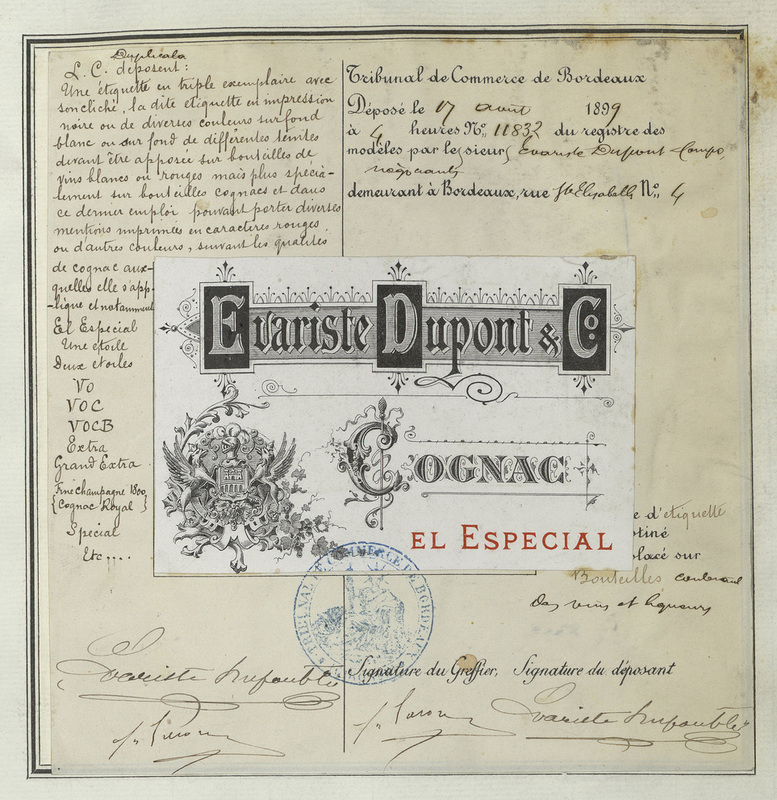 Duplicata
L. C. déposent :
Une étiquette en triple exemplaire avec
son cliché, la dite etiquette en impression
noire ou de diverses couleurs sur fond
blanc ou sur fond de différentes teintes
devant être apposée sur bouteilles de
vins blancs ou rouges mais plus spécia-
lement sur bouteilles cognacs et dans
ce dernier emploi pouvant porter diverses
mentions imprimées en caractères rouges
ou d'autres couleurs, suivant les qualités
de cognac aux-
quelles elle s'app-
-lique et notamment
El Especial
Une étoile
Deux etoiles
VO
VOC
VOCB
Extra
Grand Extra
Fine champagne 1800
{ Cognac Royal }
Special
Etc....
Tribunal de Commerce de Bordeaux
Déposé le 17 août 1899
à 4 heures No. 11832 du registre des
modèles par le sieur Evariste Dupont Compo,
négociants
demeurant à Bordeaux, rue Ste Elisabeth No. 4
Evariste Dupont & Co.
Cognac
EL ESPECIAL
e d'etiquette
tiné
placé sur
Bouteilles contenant
des vins et liqueurs
TRIBUNAL DE COMMERCE DE BORDEAUX
Signature du Greffier, Signature du déposant
Evariste Dupont & Co
Evariste Dupont & Co